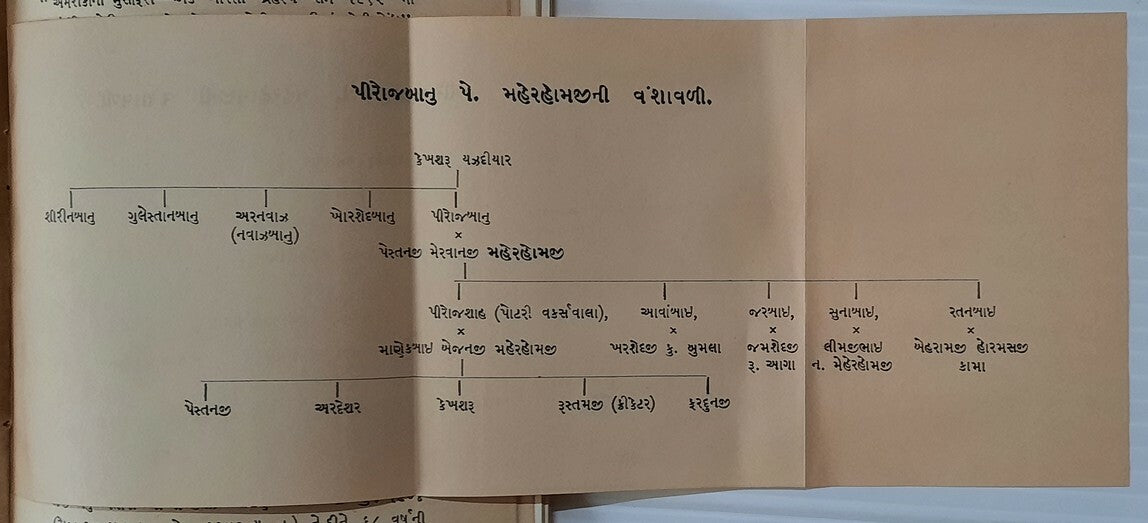 પીરોજબાનુ પે. મહેરહોમજીની વંશાવળી.
કેખશરૂ યઝદીયાર
શીરીનબાનુ ગુલેસ્તાનબાનુ અરનવાઝ ખોરશેદબાનુ પીરોજબાનુ
(નવાઝબાનુ) ×
પેસ્તનજી મેરવાનજી મહેરહોમજી
પીરોજશાહ (પોટરી વર્કસવાલા), આવાંબાઇ, જરબાઇ, સુનાબાઇ, રતનબાઇ
× × × × ×
માણેકબાઇ બેજનજી મહેરહોમજી ખરશેદજી કુ. ખુમલા જમશેદજી લીમજીભાઇ બેહરામજી હોરમસજી
રૂ. આગા ન. મેહેરહોમજી કામા
પેસ્તનજી અરદેશર કેખશરૂ રૂસ્તમજી (ક્રીકેટર) ફરદુનજી
વર્ષની